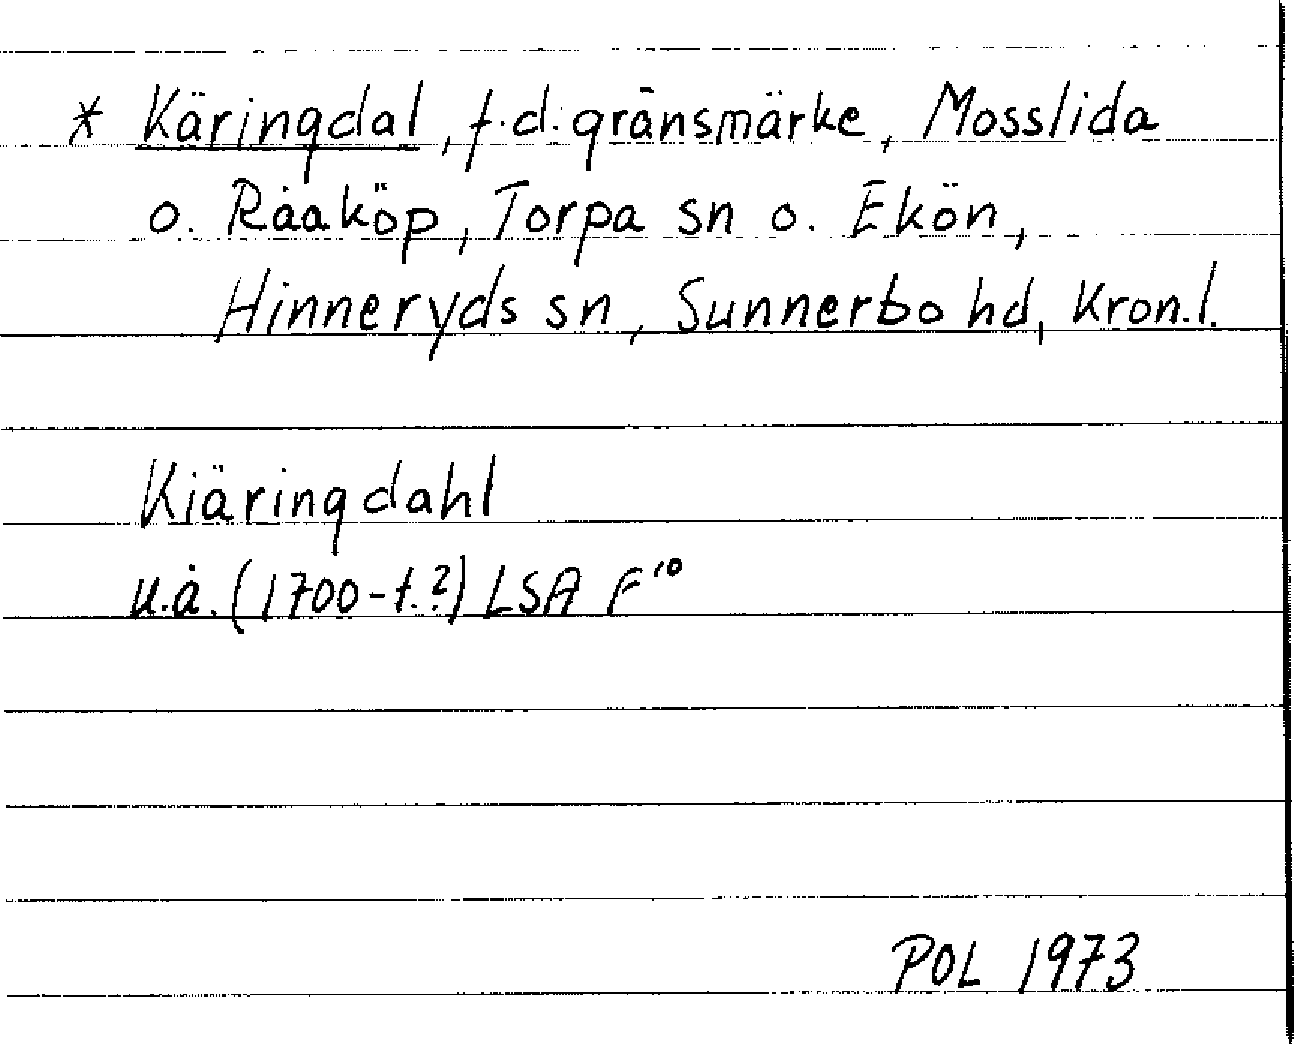 * Käringdal, f.d. gränsmärke, Mosslida
o. Rååköp, Torpa sn o. Ekön,
Hinneryds sn, Sunnerbo hd, Kron.l.
Kiäringdahl
u.å. (1700-t.?) LSA F¹⁰
POL 1973